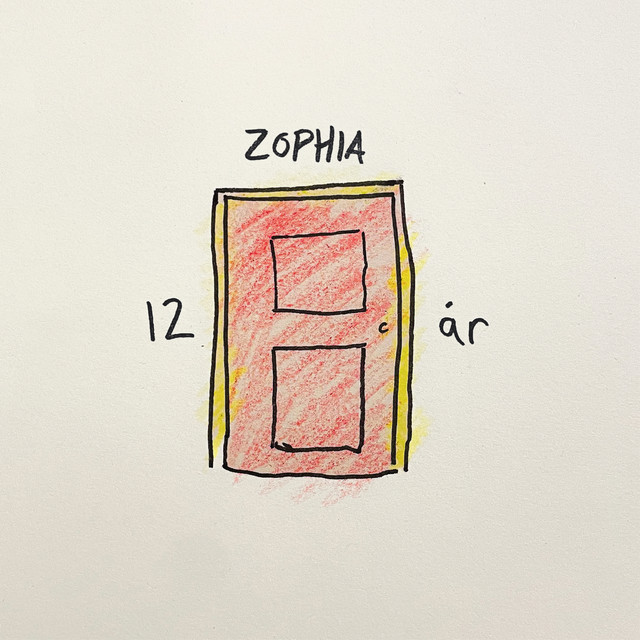 ZOPHIA
12 år